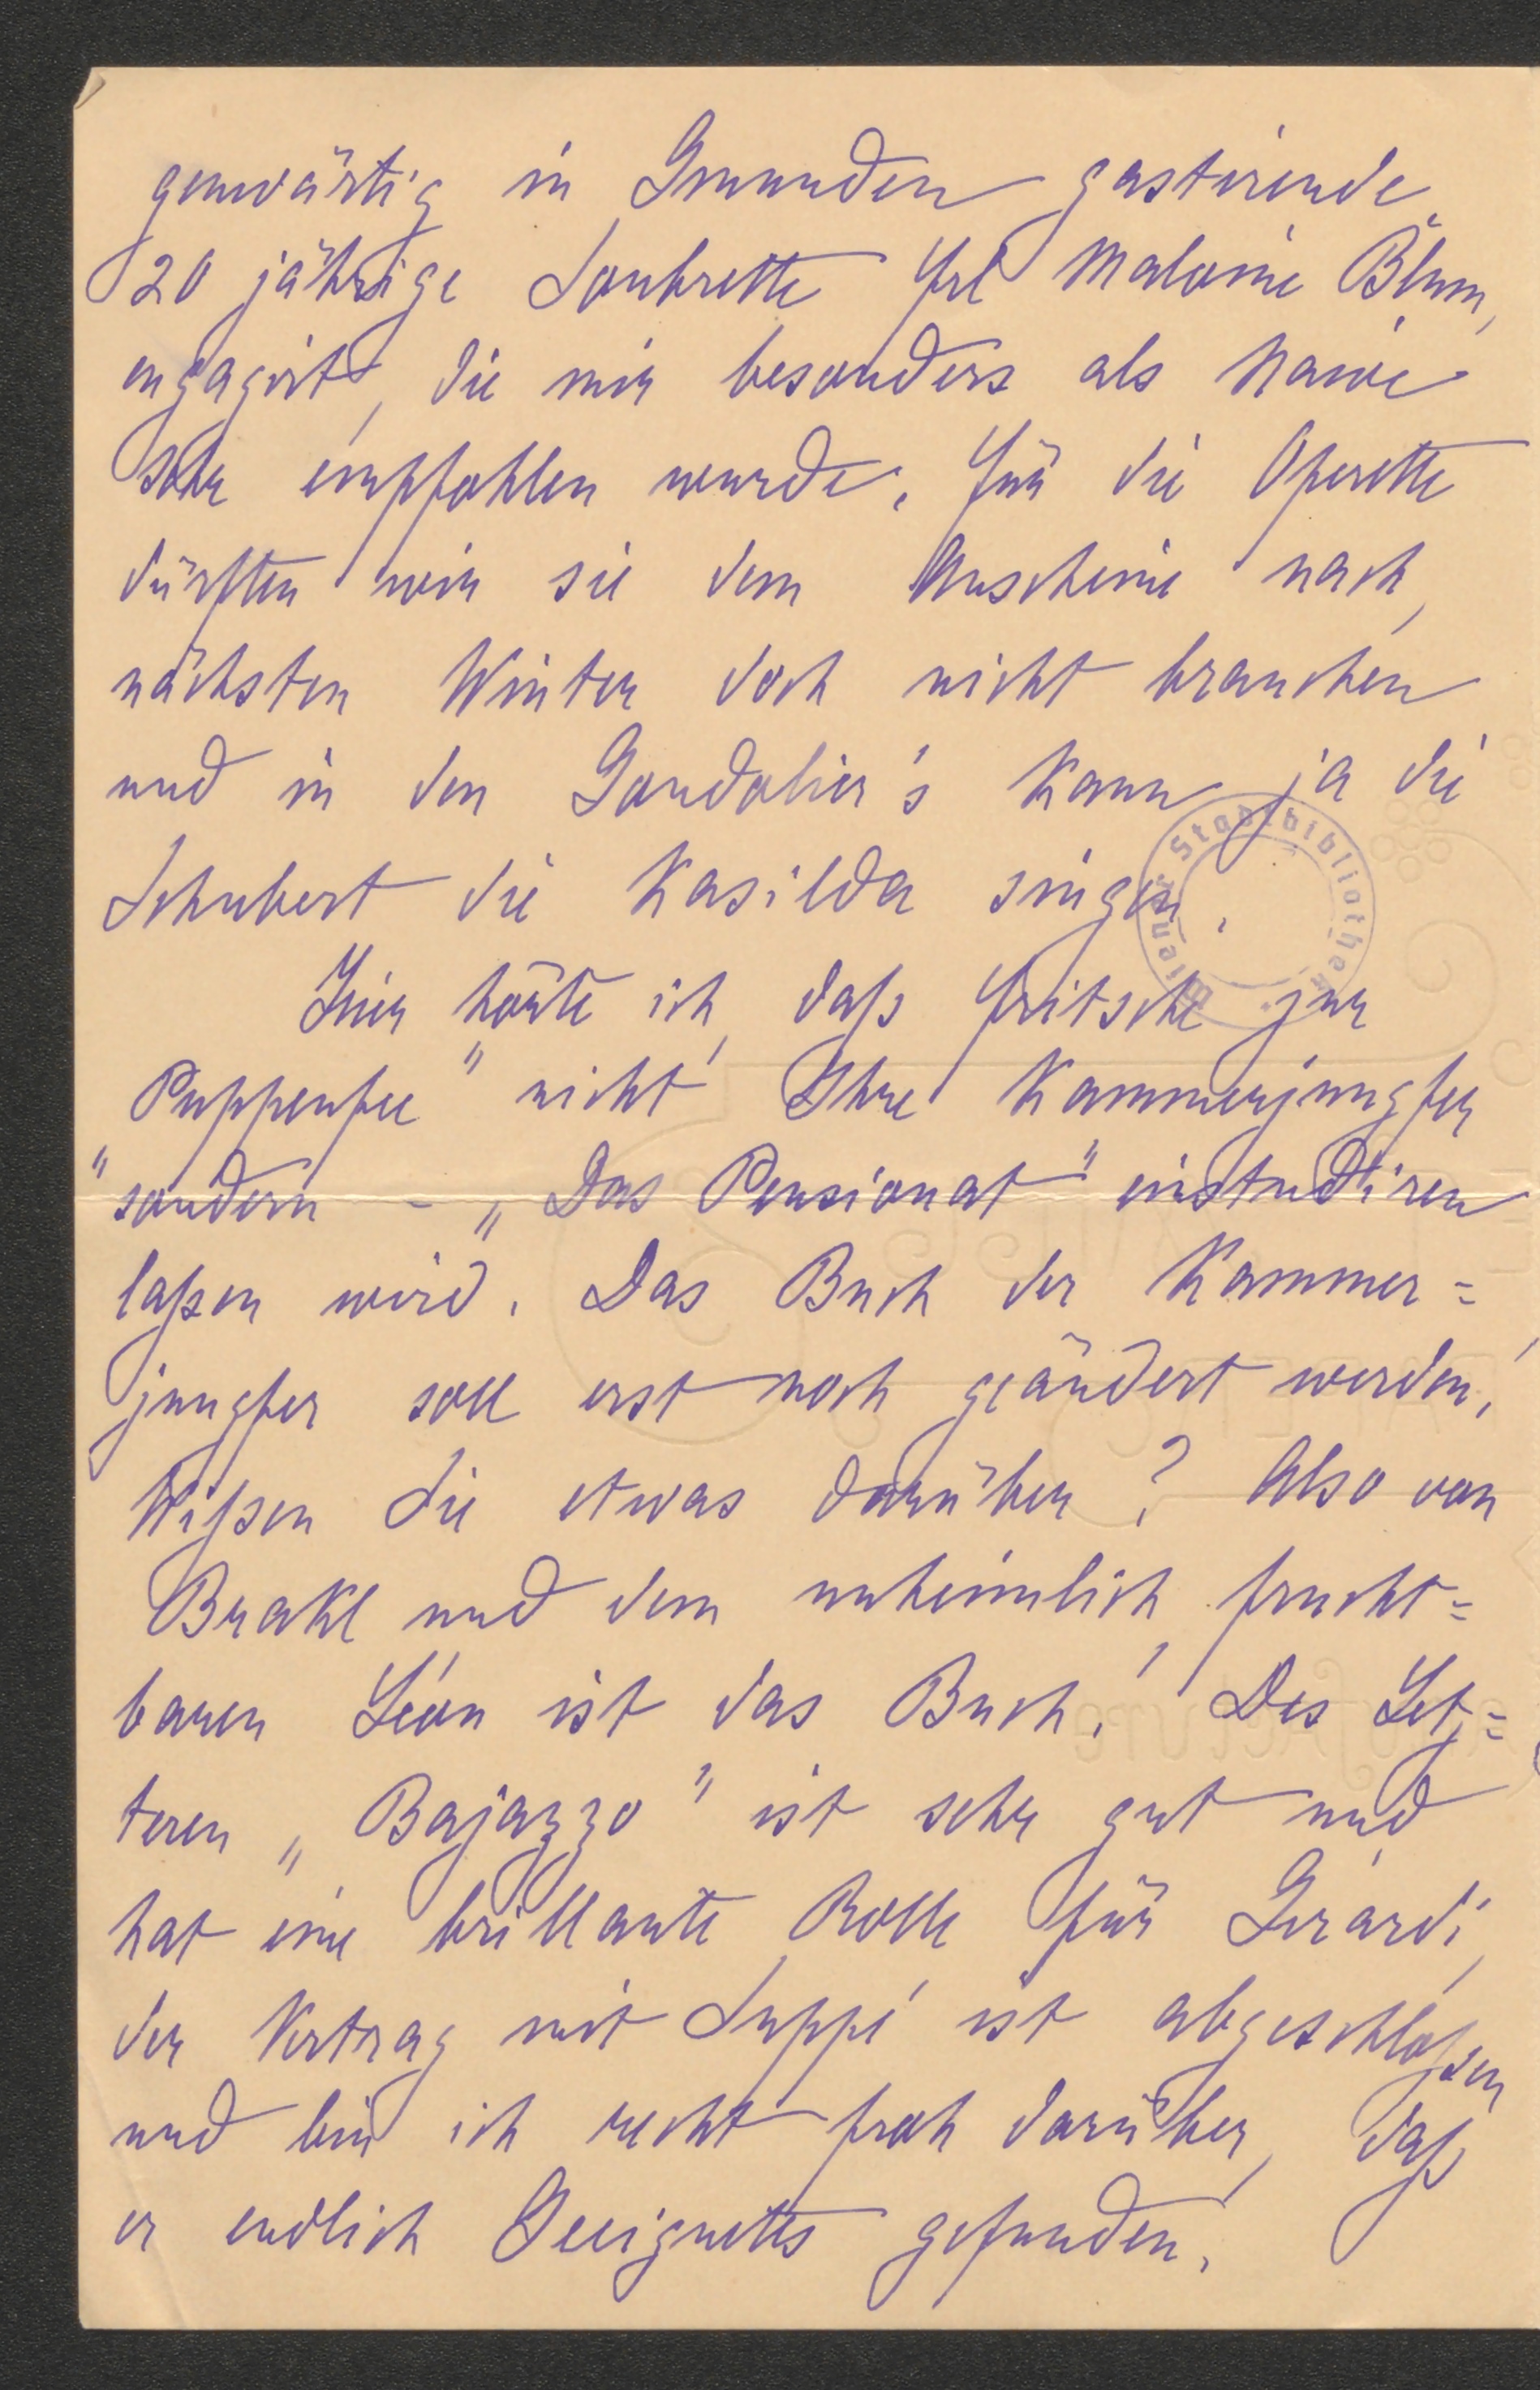 genwärtig in Gmunden gastirende
20 jährige Soubrette Frl Malvine Blum,
engagirt, die mir besonders als Naive
sehr empfohlen wurde. Für die Operette
dürften wir sie dem Anscheine nach,
nächsten Winter doch nicht brauchen
und in den Gondolier's kann ja die
Schubert die Kasilda singen.
Hier hörte ich, daß Fritsche zur
Puppenfee" nicht Ihre Kammerjungfer
"sondern - „Das Pensionat" einstudiren
laßen wird. Das Buch der Kammer=
jungfer soll erst noch geändert werden,
Wißen Sie etwas darüber? Also von
Brakl und dem unheimlich frucht=
baren Léon ist das Buch. Des Letz=
teren „Bajazzo" ist sehr gut und
hat eine brillante Rolle für Girardi,
der Vertrag mit Suppé ist abgeschloßen
und bin ich recht froh darüber, daß
er endlich Geeignetes gefunden.
Wiener Stadtbibliothek